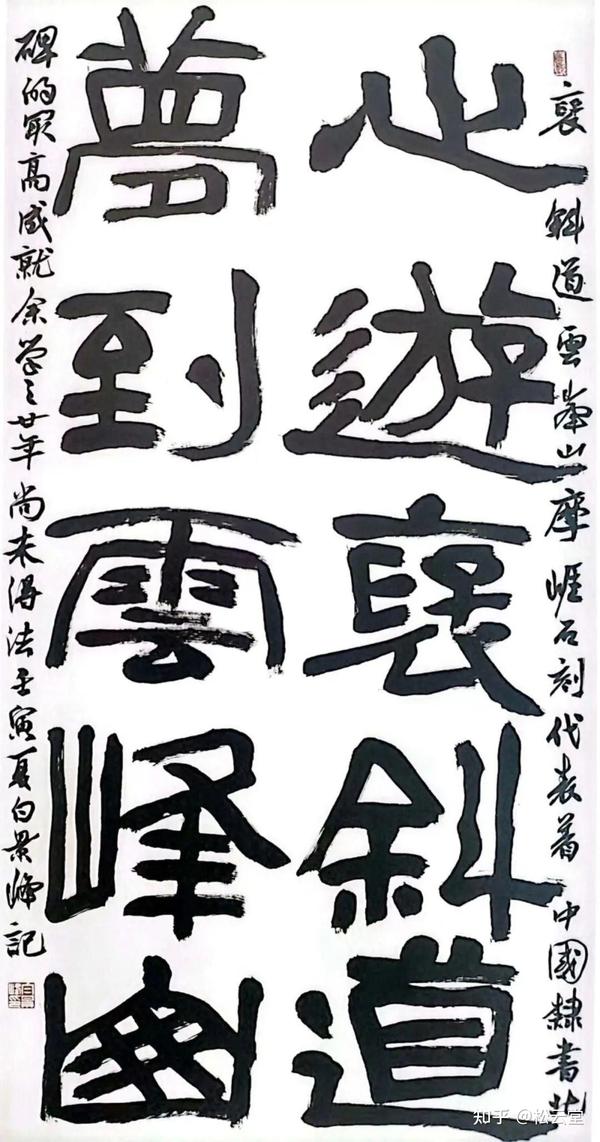 褒斜道雲峯山摩崕石刻代表着中國隸書北
心遊褒斜道
夢到雲峰幽
碑的冣高成就余學之廿年尚未得法壬寅夏白景峰記
知乎 @松云堂